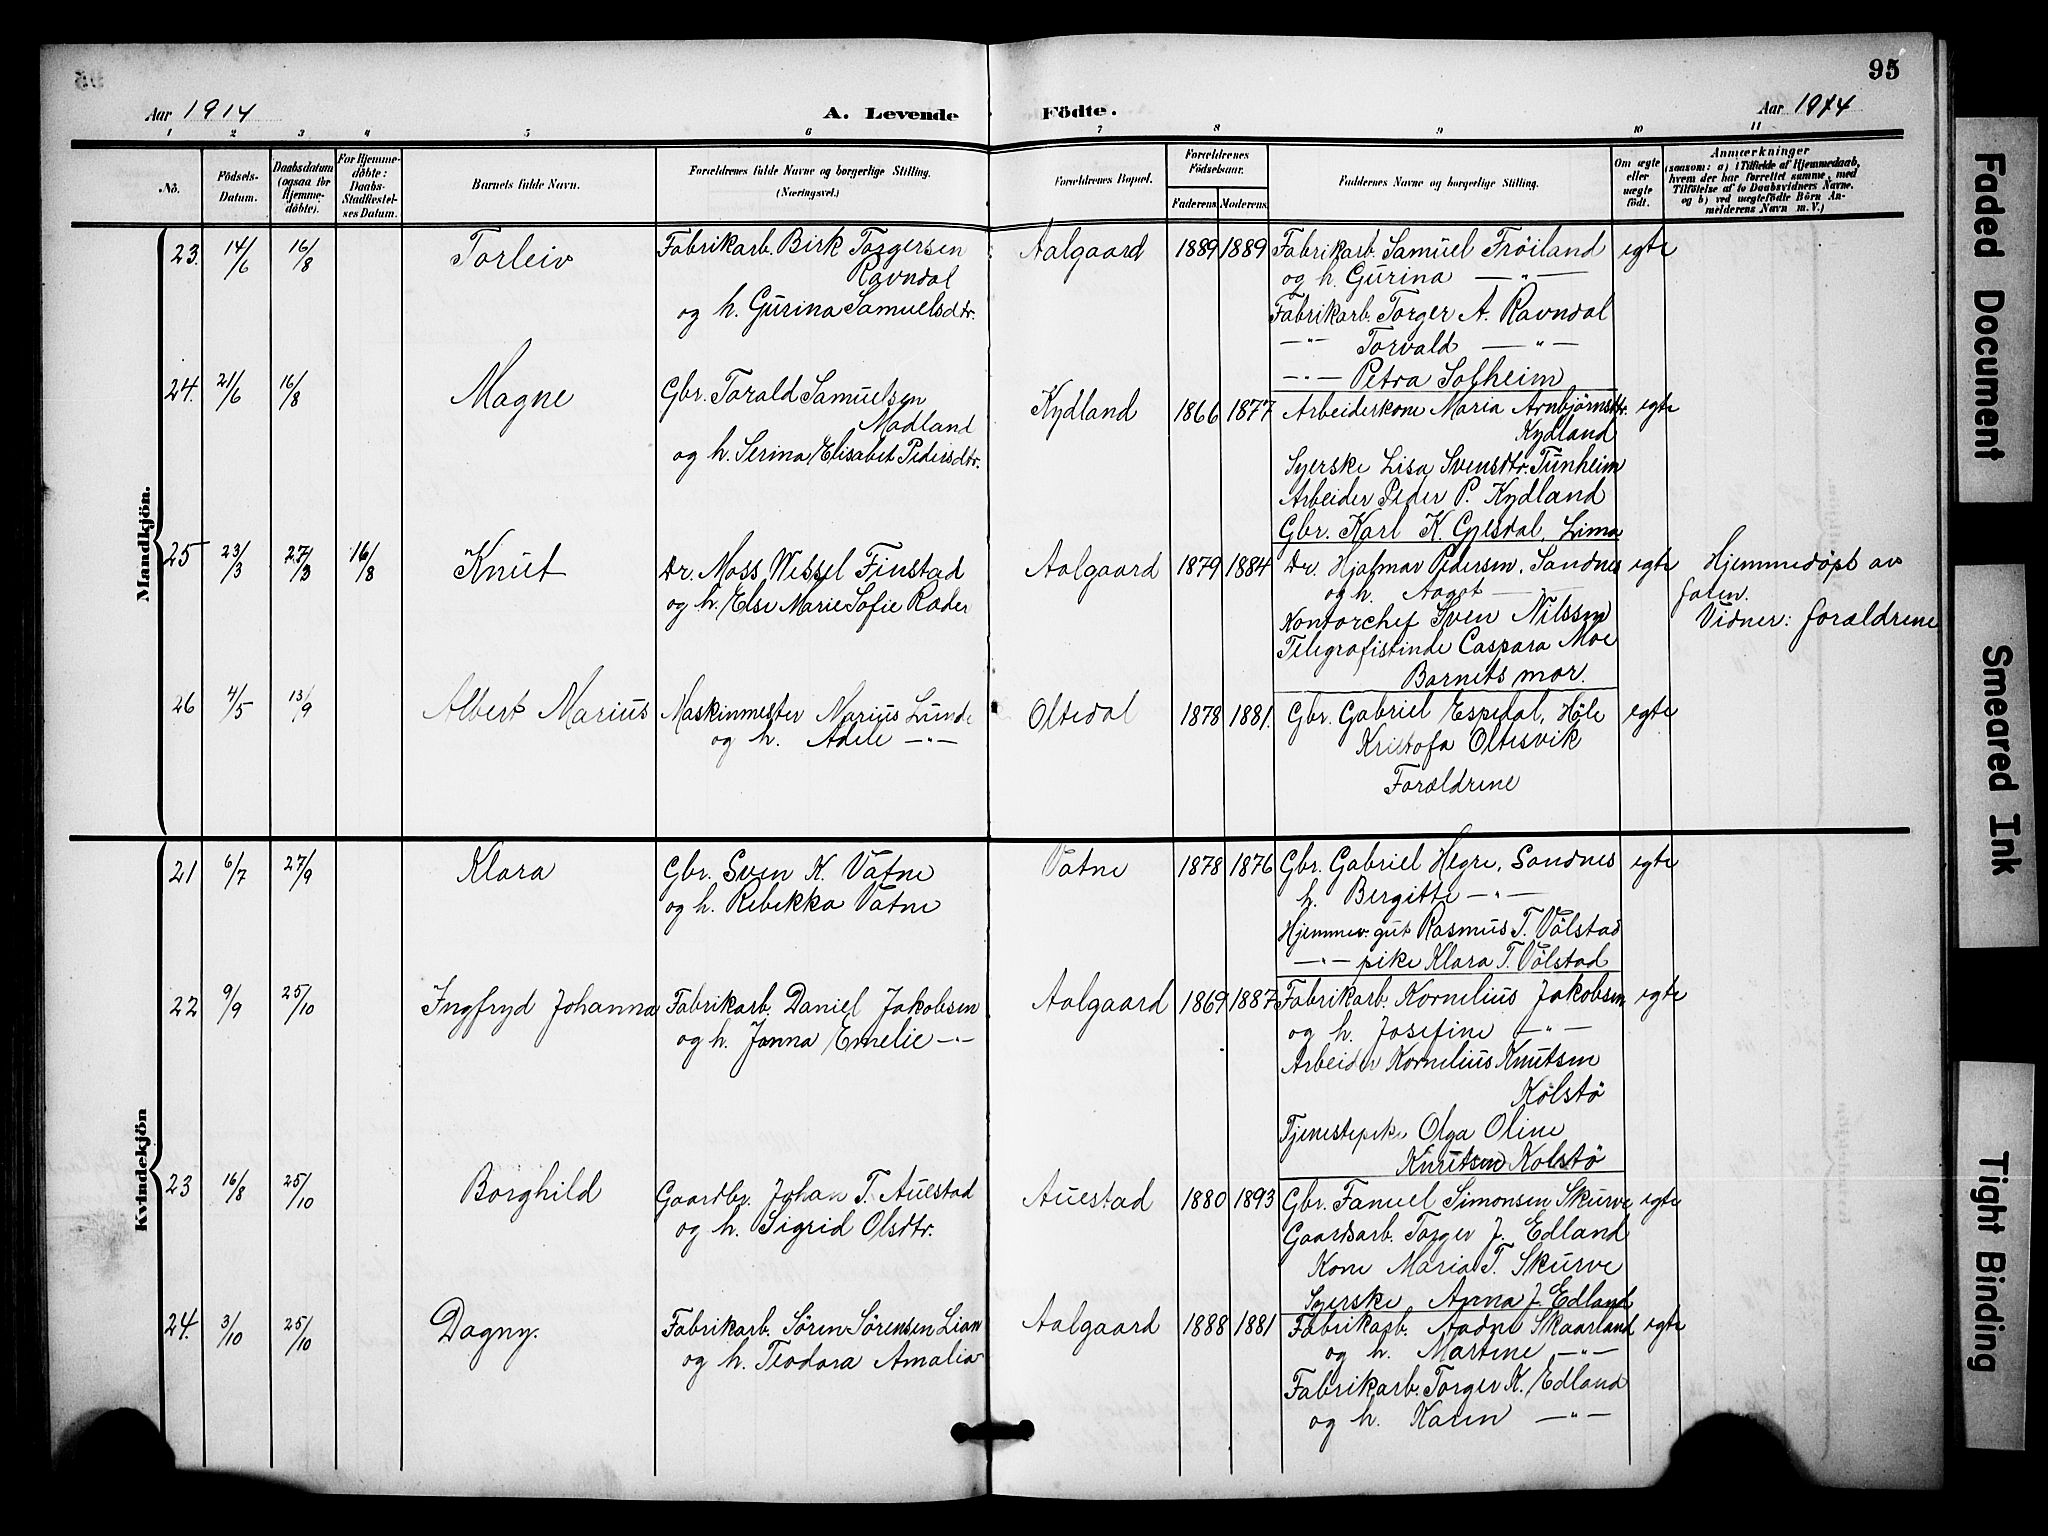 95
Aar 1914
A. Levende Födte.
Aar 1914
1 2 3 4 5 6 7 8 9 10 11
No.
Födsels-Datum.
Daabsdatum (ogsaa for Hjemme-döbte).
For Hjemme-döbte: Daabs-Stadfæstel-ses Datum.
Barnets fulde Navn.
Forældrenes fulde Navne og borgerlige Stilling.
(Næringsvei.)
Forældrenes Bopæl.
Forældrenes Födselsaar.
Faderens. Moderens.
Faddernes Navne og borgerlige Stilling.
Om ægte eller uægte födt.
Anmærkninger
(saasom: a) i Tilfælde af Hjemmedaab,
hvem der har forrettet samme, med
Tilföielse af to Daabsvidners Navne,
og b) ved uægtefödte Börn An-
melderens Navn m. V.)
Mandkjön.
23. 14/6 16/8 Torleiv
Fabrikarb. Birk Torgersen
Ravndal
og h. Gurina Samuelsdtr.
Aalgaard 1889 1889
Fabrikarb. Samuel Frøiland
og h. Gurina —"—
Fabrikarb. Torger A. Ravndal
—"— Torvald —"—
—"— Petra Solheim
egte
24. 21/6 16/8 Magne
Gbr. Torald Samuelsen
Madland
og h. Serina Elisabet Pedersdtr.
Kydland 1866 1877
Arbeiderskone Maria Arnbjørnsdtr.
Kydland
Syerske Lisa Svensdtr. Tunheim
Arbeider Peder P. Kydland
Gbr. Karl K. Gjesdal, Lima
egte
25 23/3 27/3 16/8 Knut
Dr. Moss Wessel Finstad
og h. Else Marie Sofie Ræder
Aalgaard 1879 1884
Dr. Hjalmar Pedersen, Sandnes
og h. Aagot —
Kontorchef Sven Nilssen
Telegrafistinde Caspara Moe
Barnets mor.
egte
Hjemmedøpt av
faren.
Vidner: forældrene
26 4/5 13/9 Albert Marius
Maskinmester Marius Lunde
og h. Adele —"—
Oltedal 1878 1881.
Gbr. Gabriel Espedal, Høle
Kristofa Oltesvik
Forældrene
egte
Kvindekjön
21 6/7 27/9 Klara
Gbr. Sven K. Vatne
og h. Rebekka Vatne
Vatne 1878 1876
Gbr. Gabriel Hegre, Sandnes
h. Bergitte —"—
Hjemmev. gut Rasmus T. Vølstad
—"— pike Klara T. Vølstad
egte
22 9/9 25/10 Ingfryd Johanna
Fabrikarb. Daniel Jakobsen
og h. Janna Emelie —"—
Aalgaard 1869 1887
Fabrikarb. Kornelius Jakobsen
og h. Josefine —"—
Arbeider Kornelius Knutsen
Kolstø
Tjenestepike Olga Oline
Knutsen Kolstø
egte
23 16/8 25/10 Borghild
Gaardbr. Johan T. Auestad
og h. Sigrid Olsdtr.
Auestad 1880 1893
Gbr. Fanuel Simonsen Skurve
Gaardsarb. Torger J. Edland
Kone Maria T. Skurve
Syerske Anna J. Edland
egte
24. 3/10 25/10 Dagny.
Fabrikarb. Søren Sørensen Lian
og h. Teodora Amalia
Aalgaard 1888 1881
Fabrikarb. Aadne Skaarland
og h. Martine —"—
Fabrikarb. Torger K. Edland
og h. Karen —"—
egte
Faded Document
Smeared Ink
Tight Binding